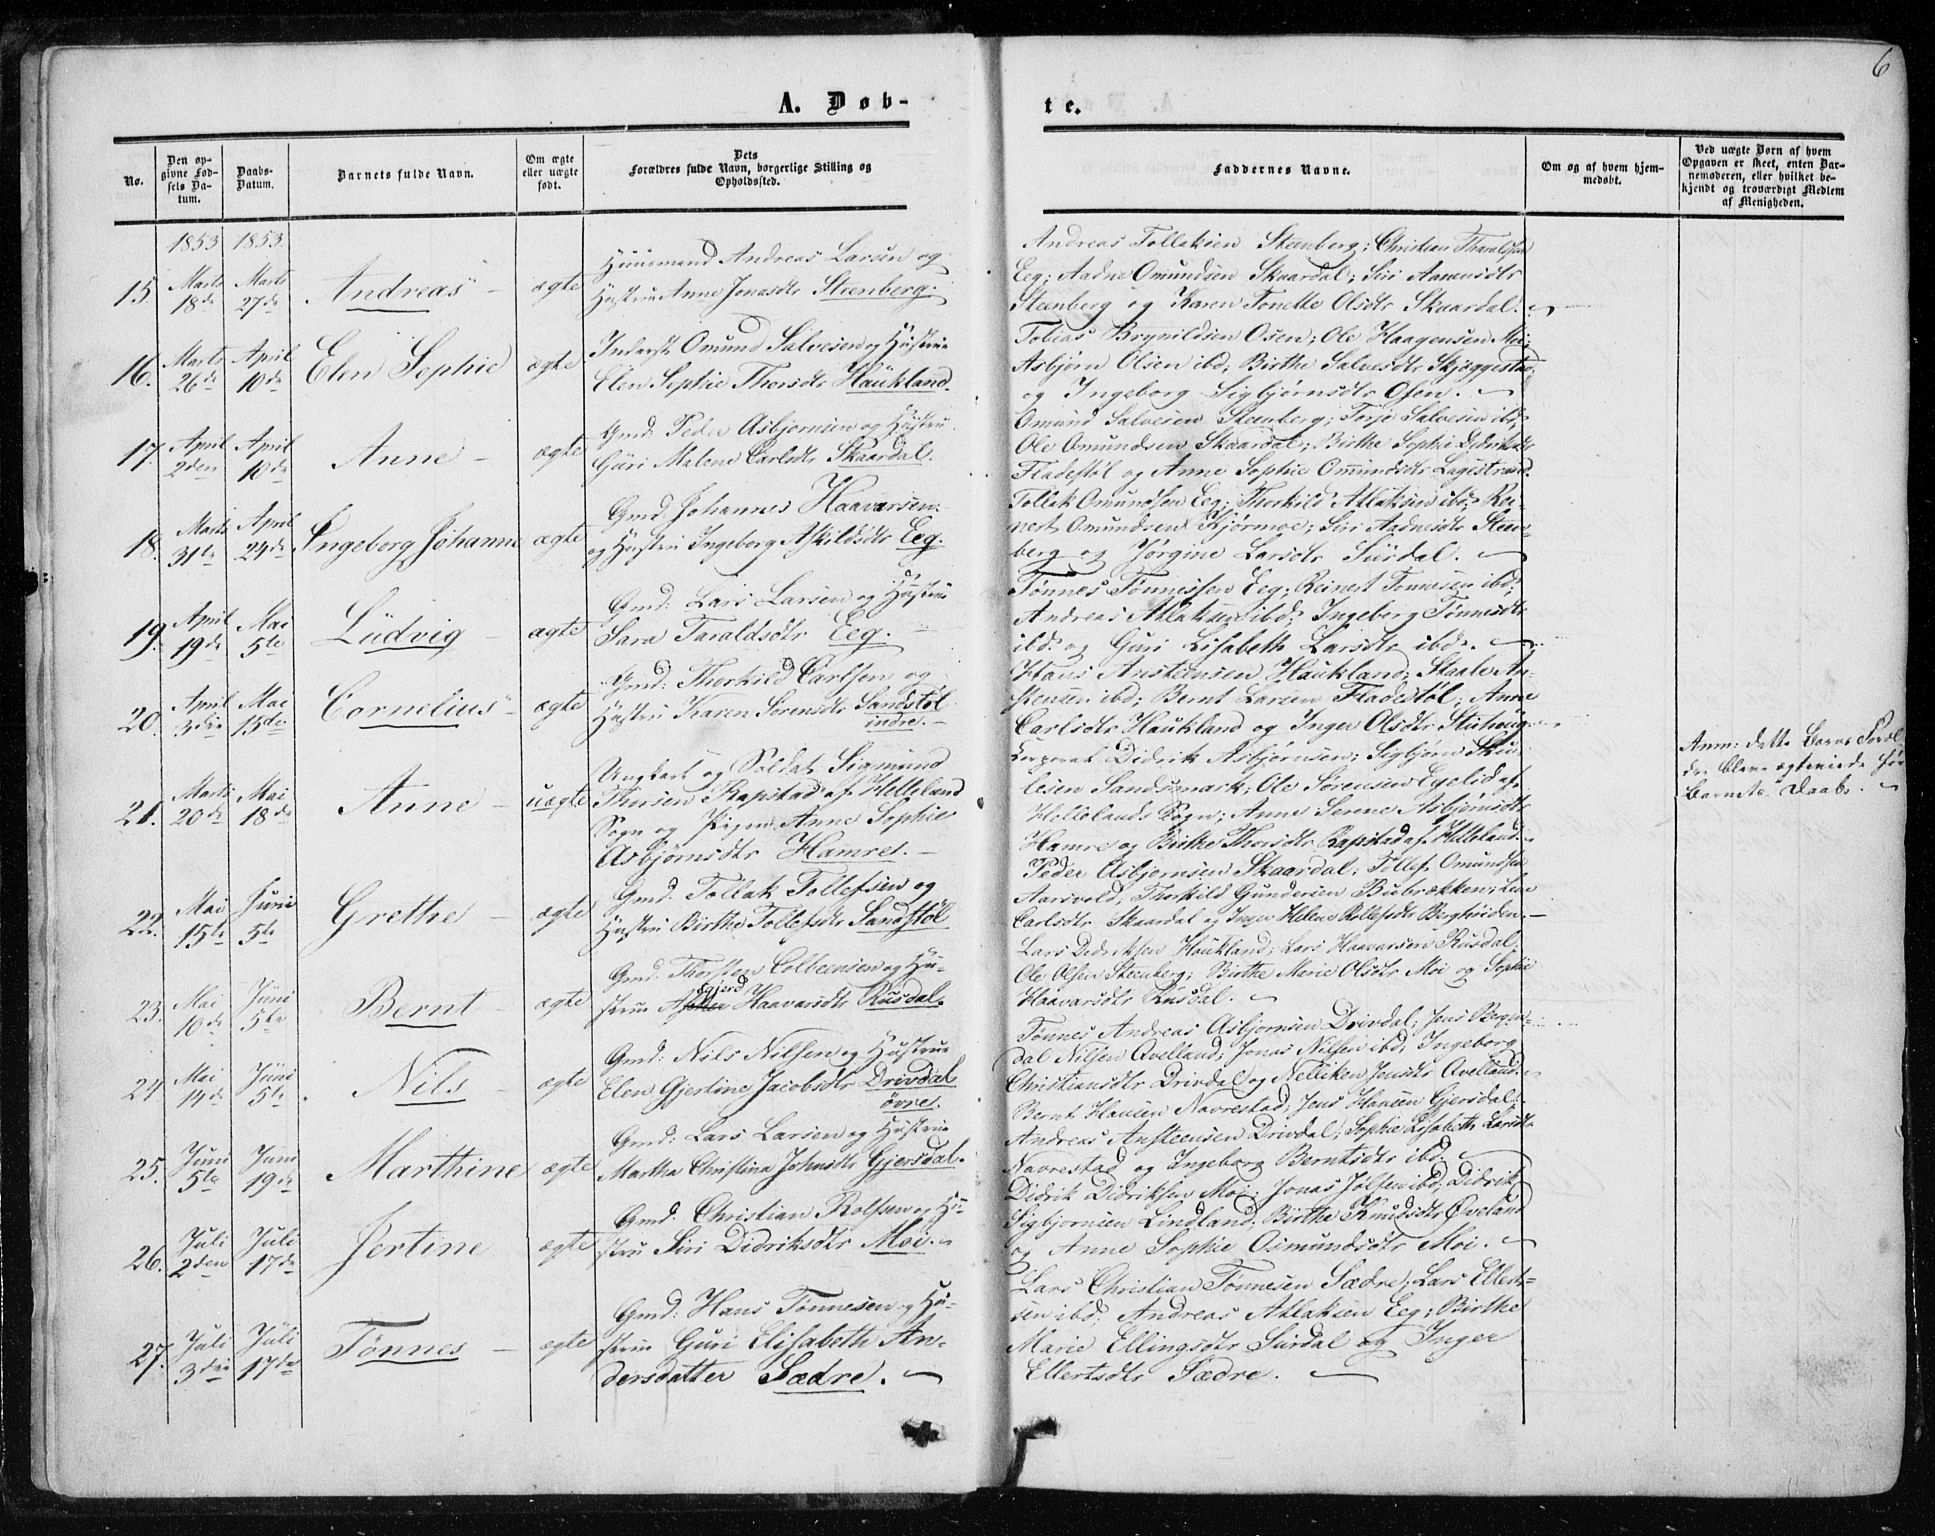 6
A. Døb-
te.
No.
Den op-
givne Fød-
sels Da-
tum.
Daabs-
Datum.
Barnets fulde Navn.
Om ægte
eller uægte
født.
Dets
Forældres fulde Navn, borgerlige Stilling og
Opholdssted.
Faddernes Navne.
Om og af hvem hjem-
medøbt.
Ved uægte Børn af hvem
Opgaven er skeet, enten Bar-
nemoderen, eller hvilket be-
kjendt og troværdigt Medlem
af Menigheden.
1853 1853
15 Marts 18de Marts 27de Andreas ægte
Huusmand Andreas Larsen og
Hustru Anne Jonasdtr Steenberg.
Andreas Tollaksen Steenberg; Christian Tharaldsen
Eeg; Aadne Omundsen Skaardal; Siri Aanensdtr
Steenberg og Karen Tonette Olsdtr Skaardal.
16. Marts 26de April 10de Elen Sophie ægte
Inderst Omund Salvesen og Hustrue
Elen Sophie Thorsdtr Haukland.
Tobias Brynildsen Osen; Ole Haagensen Moi;
Asbjørn Olsen ibd; Birthe Salvesdtr Skjæggestad
og Ingeborg Sigbjørnsdtr Osen.
17. April 2den April 10de Anne ægte
Gmd. Peder Asbjørnsen og Hustru
Guri Malene Carlsdtr Skaardal.
Omund Salvesen Steenberg; Torje Salvesen ibd;
Ole Omundsen Skaardal; Birthe Sophie Didriksdtr
Fladestøl og Anne Sophie Omundsdtr Lagestrand.
18. Marts 31te April 24de Ingeborg Johanne ægte
Gmd. Johannes Haavarsen
og Hustru Ingeborg Askildsdtr Eeg.
Tollak Omundsen Eeg; Thorkild Atlaksen ibd; Rei-
nert Omundsen Kjørmoe; Siri Aadnesdtr Steen-
berg og Jørgine Larsdtr Surdal.
19. April 19de Mai 5te Ludvig ægte
Gmd: Lars Larsen og Hustrue
Sara Taraldsdtr Eeg.
Tønnes Tønnessen Eeg; Reinert Tønnesen ibd;
Andreas Atlaksen ibd; Ingeborg Tønnesdtr
ibd. og Guri Lisabeth Larsdtr ibd.
20. April 3die Mai 15de Cornelius ægte
Gmd: Thorkild Carlsen og
Hustru Karen Sørensdtr Sandstøl
indre.
Hans Anstensen Haukland; Staale An-
stensen ibd; Bernt Larsen Fladestøl; Anne
Carlsdtr Haukland og Inger Olsdtr Stuhoug
21. Marts 20de Mai 18de Anne uægte
Ungkarl og Soldat Sigmund
Thorsen Rapstad af Helleland
Sogn og Pigen Anne Sophie
Asbjørnsdtr Hamre.
Corporal Didrik Asbjørnsen; Sigbjørn Sku-
lesen Sandsmark; Ole Sørensen Egelid af
Hellelands Sogn; Anne Serine Asbjørnsdtr
Hamre og Birthe Thorsdtr Rapstad af Helleland.
Anm: dette Barns Foræl-
dre bleve ægteviede før
Barnets Daab.
22. Mai 15te Juni 5te Grethe ægte
Gmd: Tollak Tollefsen og
Hustru Birthe Tollefsdtr Sandstøl
Peder Asbjørnsen Skaardal; Tollef Omundsen
Aarsvold; Thorkild Gundersen Bubrækken; Lene
Carlsdtr Skaardal og Inger Helene Rollefsdtr Berglidden.
23. Mai 10de Juni 5te Bernt ægte
Gmd: Thorsten Colbensen og Hu-
strue Asgjerd Haavarsdtr Rusdal.
Lars Didriksen Haukland; Lars Haavarsen Rusdal;
Ole Olsen Steenberg; Birthe Marie Olsdtr Moi og Sophie
Haavarsdtr Rusdal.
24 Mai 14de Juni 5te. Nils ægte
Gmd: Nils Nilsen og Hustrue
Elen Gjertine Jacobsdtr Drivdal
øvre.
Tønnes Andreas Asbjørnsen Drivdal; Jens Bergen-
dal Nilsen Avelland; Jonas Nilsen ibd; Ingeborg
Christiansdtr Drivdal og Nelliken Jensdtr Avelland.
25. Juni 5te Juni 19de Marthine ægte
Gmd: Lars Larsen og Hustrue
Martha Christina Johnsdtr Gjersdal.
Bernt Hansen Navrestad; Jens Hansen Gjersdal;
Andreas Ansteensen Drivdal; Sophie Lisabeth Larsdtr
Navrestad og Ingeborg Berntsdtr ibd.
26. Juli 2den Juli 17de Jertine ægte
Gmd. Christian Rolfsen og Hu-
stru Siri Didriksdtr Moi.
Didrik Didriksen Moi; Jonas Jolsen ibd; Didrik
Sigbjørnsen Lindland; Birthe Knudsdtr Øveland
og Anne Sophie Osmundsdtr Moi.
27. Juli 3die Juli 17de Tønnes ægte
Gmd: Hans Tønnesen og Hu-
strue Guri Elisabeth An-
dersdatter Sædre.
Lars Christian Tønnesen Sædre; Lars Ellert-
sen ibd; Andreas Atlaksen Eeg; Birthe
Marie Ellingsdtr Surdal og Inger
Ellertsdtr Sædre.